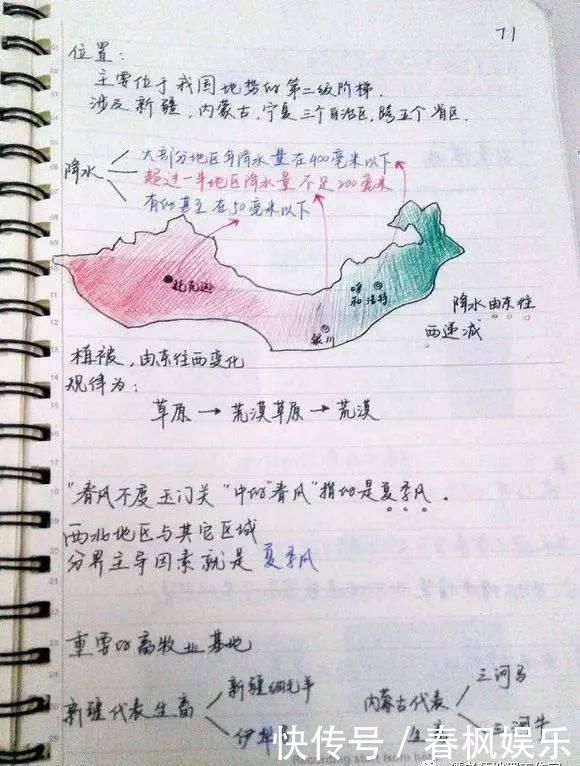 71
位置：
主要位于我国地势的第二级阶梯.
涉及新疆,内蒙古,宁夏三个自治区,跨五个省区.
降水
大部分地区年降水量在400毫米以下
超过一半地区降水量不足200毫米
有的甚至在50毫米以下
呼和浩特
银川
降水由东往
西递减
植被,由东往西变化
规律为:
草原→荒漠草原→荒漠
"春风不度玉门关"中的"春风"指的是夏季风.
西北地区与其它区域
分界主导因素就是夏季风
重要的畜牧业基地
新疆代表牲畜
新疆细毛羊
内蒙古代表
三河马
三河牛
快传号／春枫娱乐